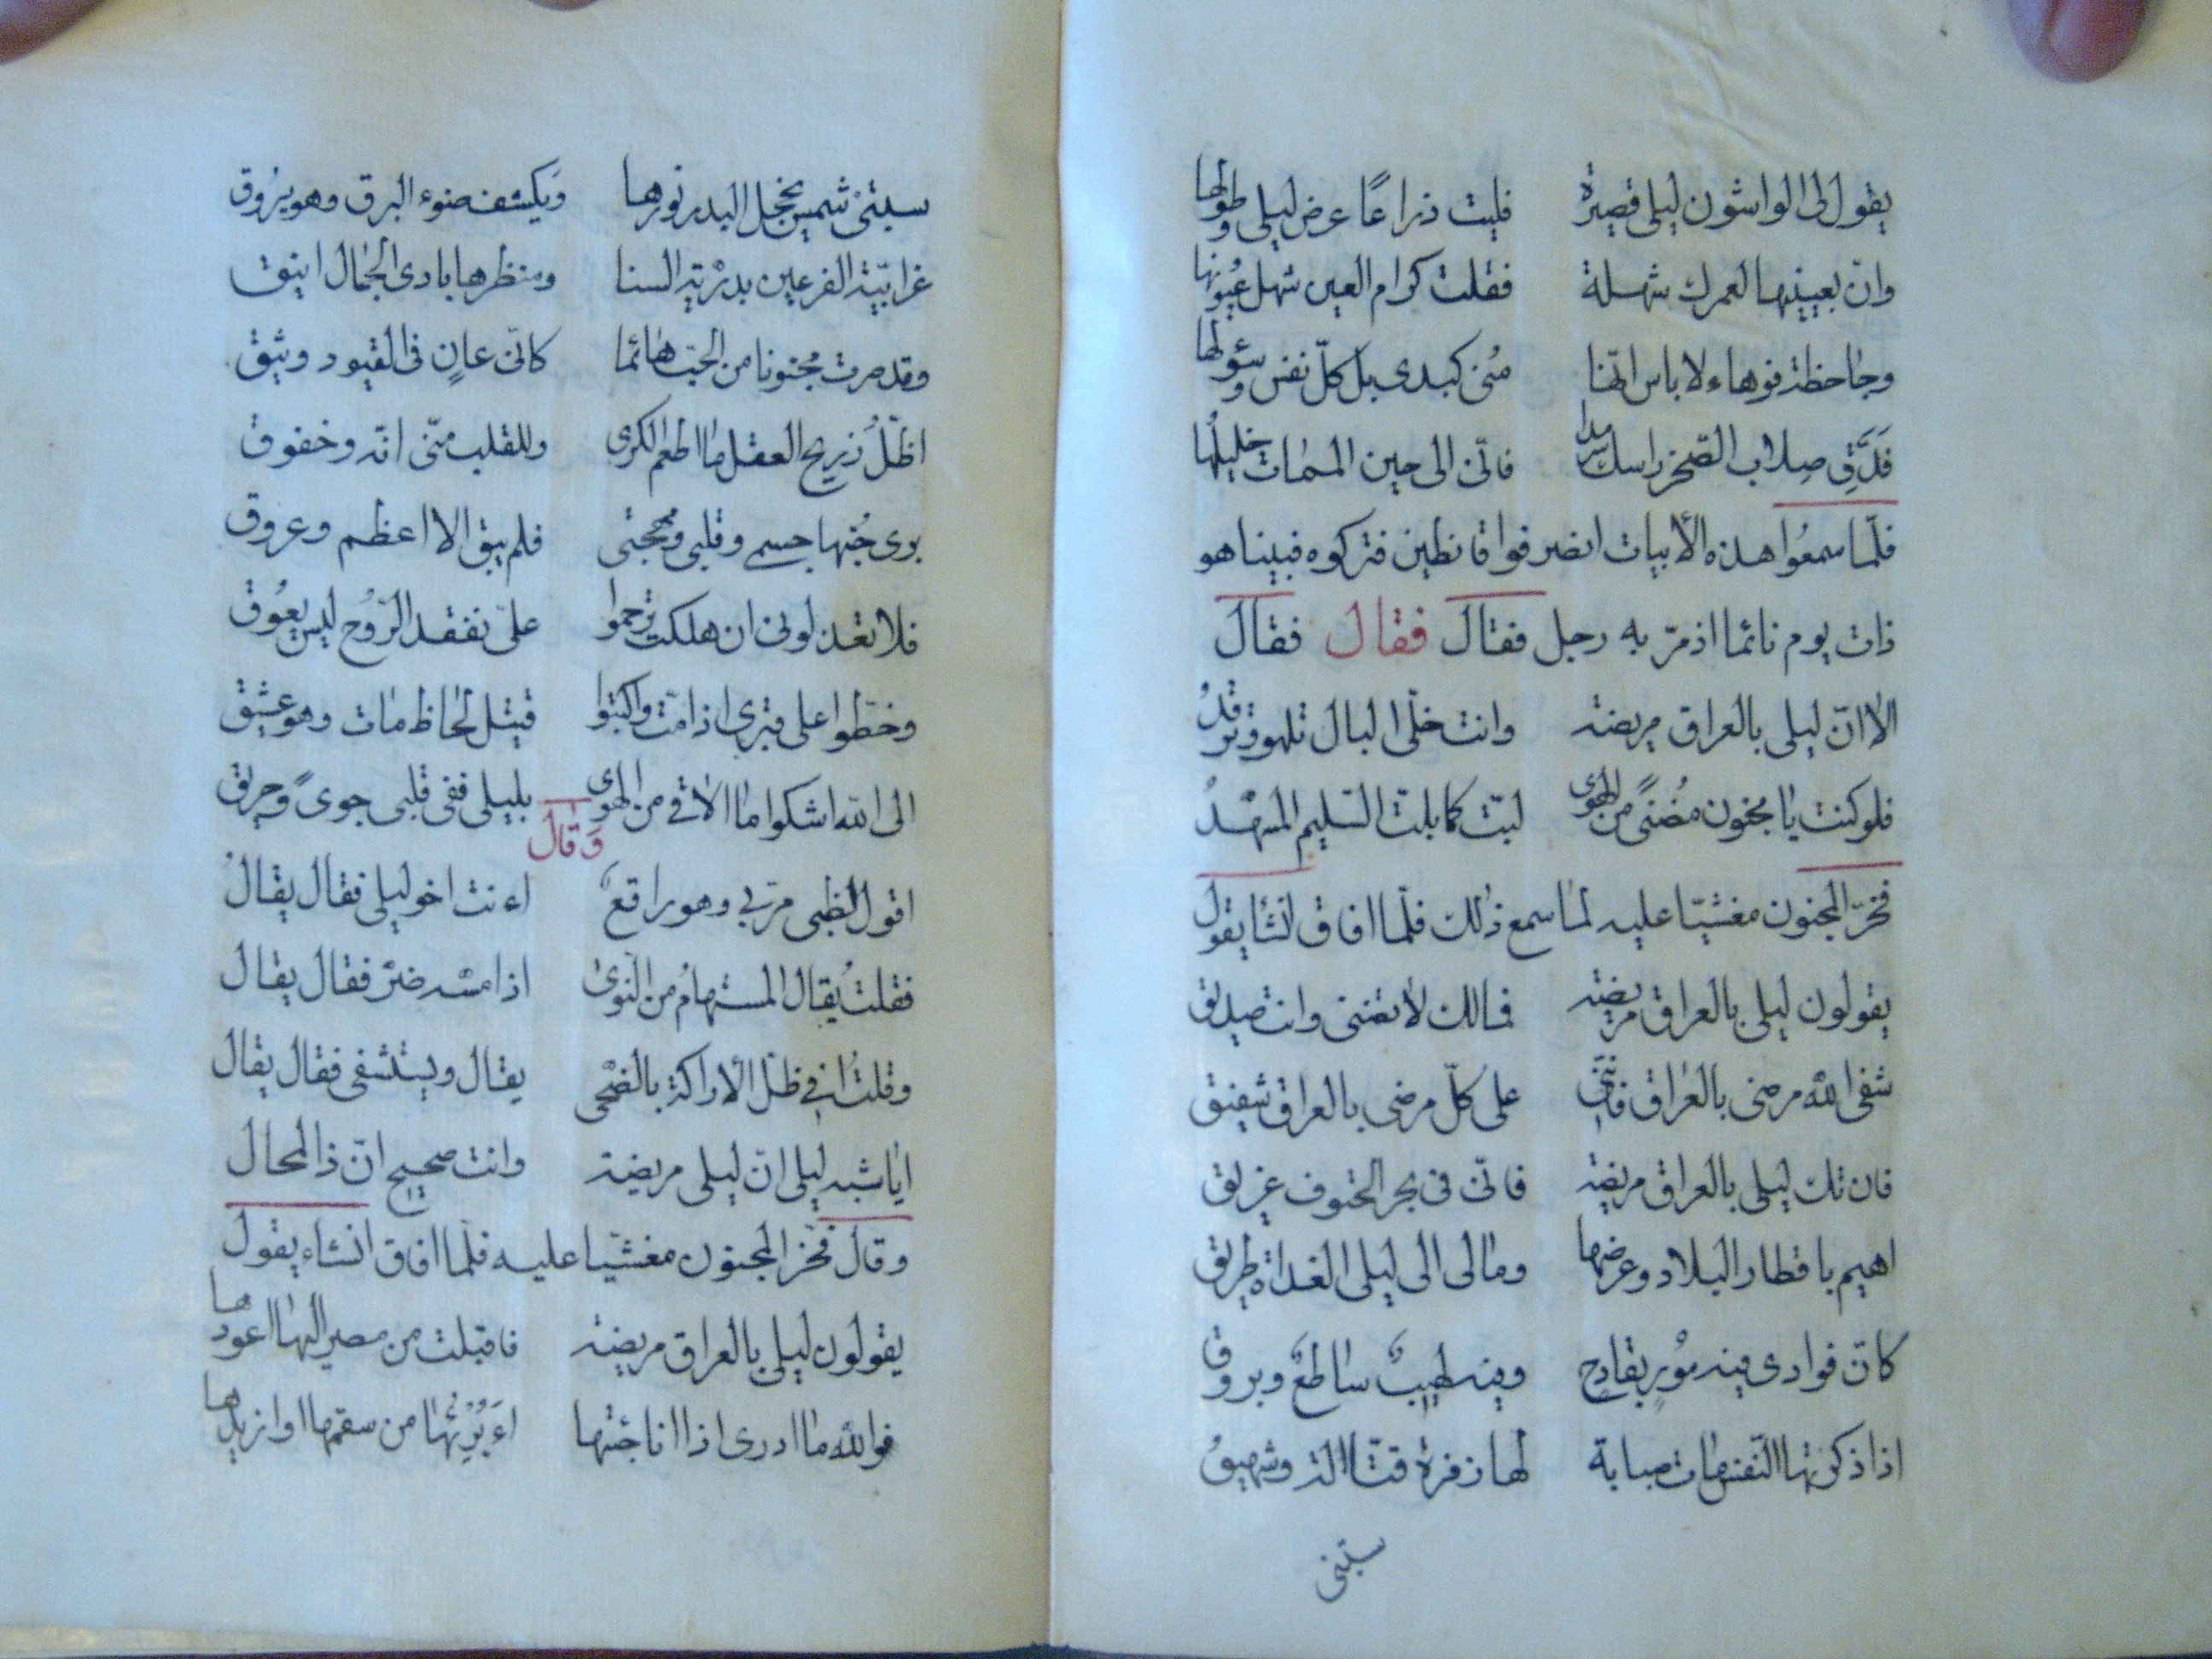 يقول لى الواشون ليلى قصيرة فليت ذراعًا عرض ليلى وطولها
وانّ بعينيها لعمرك شهلة فقلت كرام العين شهل عيونها
وجاحظة فوهاء لا باس انّها منى كبدى بل كلّ نفس وسؤلها
فدقّى صلاب الصّخر راسك سرمدا فانّى الى حين الممات خليلها
فلّما سمعوا هذه الأبيات انصرفوا قانطين فتركوه فبيناهو
ذات يوم نائما اذ مرّ به رجل فقال فقال فقال
الا انّ ليلى بالعراق مريضة وانت خلّى البال تلهو وترقدُ
فلو كنت يا مجنون مضنًى من الهوى لبتّ كما بات السّليم المسهّدُ
فخرّ المجنون مغشيّا عليه لما سمع ذلك فلّما افاق انشا يقول
يقولون ليلى بالعراق مريضة فمالك لا تضنى وانت صديق
شفى الله مرضى بالعراق فانّنى على كلّ مرضى بالعراق شفيق
فان تك ليلى بالعراق مريضة فانّى فى بحر الحتوف غريق
اهيم باقطار البلاد وعرضها ومالى الى ليلى الغداة طريق
كانّ فوادى فيه مورٍ بقادح وفيه لهيبٌ ساطعٌ وبروق
اذا ذكرتها النّفس مات صبابة لها زفرة قتّالة وشهيقُ
سبتنى
سبتنى شمس يخجل البدر نورها ويكسف ضوء البرق وهو يروق
غرابيّة الفرعين بدريّة السنا ومنظرها بادى الجمال انيق
وقد صرت مجنونا من الحبّ هائما كانّى عانٍ فى القيود وثيق
اظلّ رزيح العقل ما اطعم الكرى وللقلب منّى انّه وخفوق
برى حبّها جسمى وقلبى ومهجتى فلم يبق الا اعظم وعروق
فلا تعذلونى ان هلكت ترحموا علىّ ففقد الرّوح ليس يعوق
وخطّوا على قبرى اذا متّ واكتبوا قتيل لحاظ مات وهو عشيق
الى الله اشكوا ما الاقى من الهوى بليلى ففى قلبى جوىً وحريق
وَقَال
اقول لظبى مرّ بى وهو راقعٌ اءنت اخو ليلى فقال يقالُ
فقلتُ يقال المستهامُ من النّوى اذا مسّه ضرّ فقال يقال
وقلت افى ظلّ الأراكة بالضّحى يقال ويستشفى فقال يقال
ايا شبه ليلى انّ ليلى مريضة وانت صحيح انّ ذا لمحال
وقال فخرّ المجنون مغشّيا عليه فلّما افاق انشاء يقول
يقولون ليلى بالعراق مريضة فاقبلت من مصر اليها اعودها
فوالله ما ادرى اذا انا جئتها اءَبُرْئها من سقمها او ازيدها